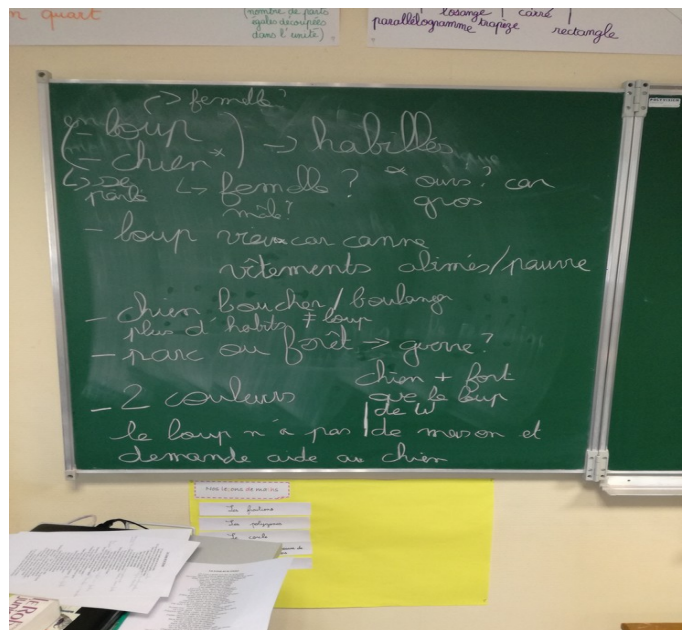 n quart
(nombre de parts
égales découpées
dans l'unité)
losange
carré
parallélogramme
trapèze
rectangle
↳> femelle ?
(- loup
- chien*) -> habillés
↳ se
parle
↳ femelle ?
mâle ?
* ours ? car
gros
- loup vieux car canne
vêtements abimés/pauvre
- chien boucher/boulanger
plus d'habits ≠ loup
- parc ou forêt -> guerre ?
- 2 couleurs
chien + fort
que le loup
le loup n'a pas de maison et
de w
demande aide au chien
Les fractions
Les polygones
Le cercle